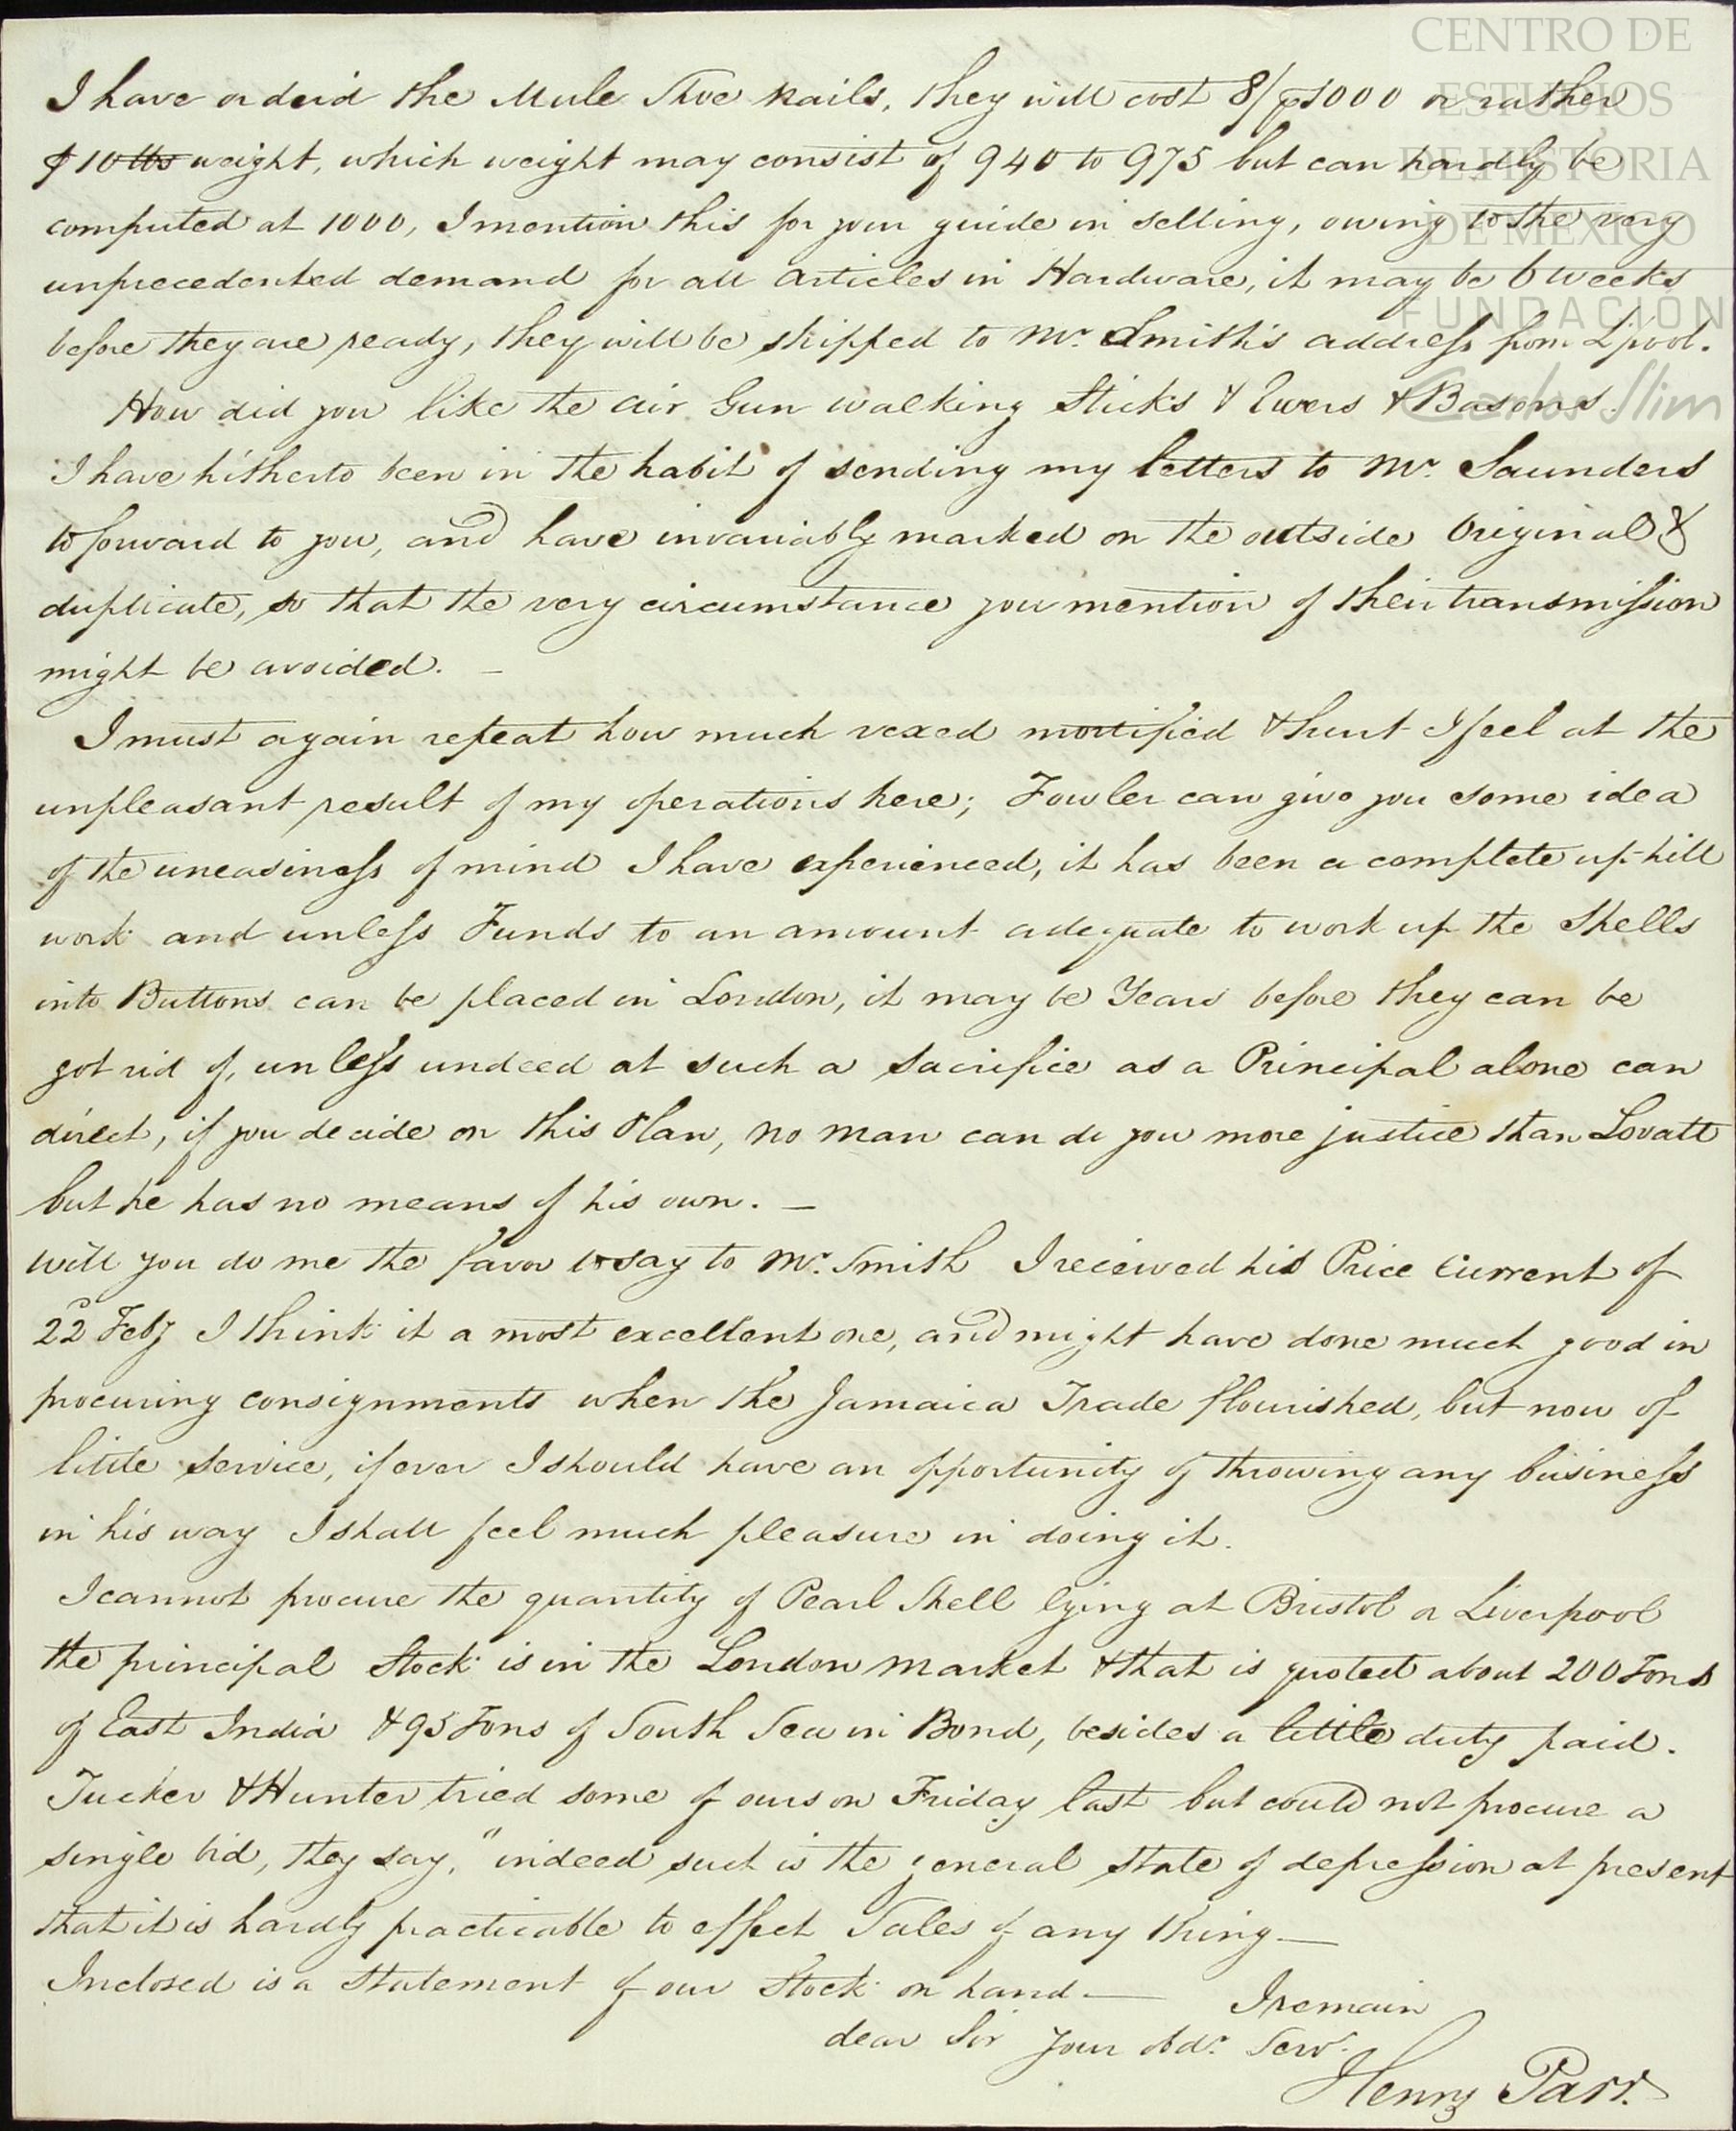 CENTRO DE
ESTUDIOS
DE HISTORIA
DE MÉXICO
FUNDACIÓN
Carlos Slim
I have orderid the Mule Shoe Nails, they will cost 8/ ⅌ 1000 or rather
⅌ 10 lbs weight, which weight may consist of 940 to 975 but can hardly be
computed at 1000, I mention this for your guide in selling, owing to the very
unprecedented demand for all articles in Hardware, it may be 6 weeks
before they are ready, they will be shipped to Mr. Smith's address from L'pool.
How did you like the air Gun walking Sticks & Ewers & Basons.
I have hitherto been in the habit of sending my letters to Mr. Saunders
to forward to you, and have invariably marked on the outside Original &
duplicate, so that the very circumstance you mention of their transmission
might be avoided. —
I must again repeat how much vexed mortified & hurt I feel at the
unpleasant result of my operations here; Fowler can give you some idea
of the uneasiness of mind I have experienced, it has been a complete up-hill
work and unless Funds to an amount adequate to work up the Shells
into Buttons can be placed in London, it may be Years before they can be
got rid of, unless undeed at such a Sacrifice as a Principal alone can
direct, if you decide on this Plan, no man can do you more justice than Lovatt
but he has no means of his own. —
will you do me the favor to say to Mr. Smith I received his Price Current of
22d Feby I think it a most excellent one, and might have done much good in
procuring consignments when the Jamaica Trade flourished, but now of
little service, if ever I should have an opportunity of throwing any business
in his way I shall feel much pleasure in doing it.
I cannot procure the quantity of Pearl Shell lying at Bristol or Liverpool
the principal Stock is in the London market & that is quoted about 200 Tons
of East India & 95 Tons of South Sea in Bond, besides a little duty paid.
Tucker & Hunter tried some of ours on Friday last but could not procure a
single bid, they say, "indeed such is the general state of depression at present
that it is hardly practicable to effect Sales of any thing —
Inclosed is a Statement of our Stock on hand — I remain
dear Sir Your Obdt. Servt.
Henry Parr.